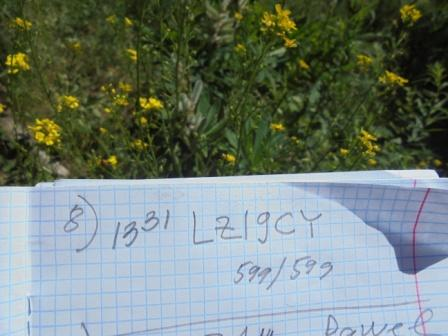 8) 1331 LZ1GCY
599/599
Pawel